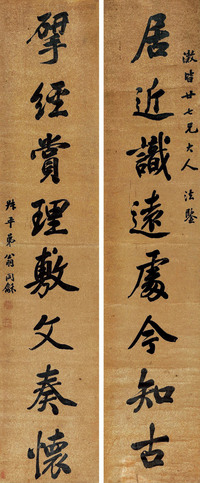 澂皆廿七兄大人 法鑒
居近識遠處今知古
擘經賞理敷文奏懷
姪平弟翁同龢